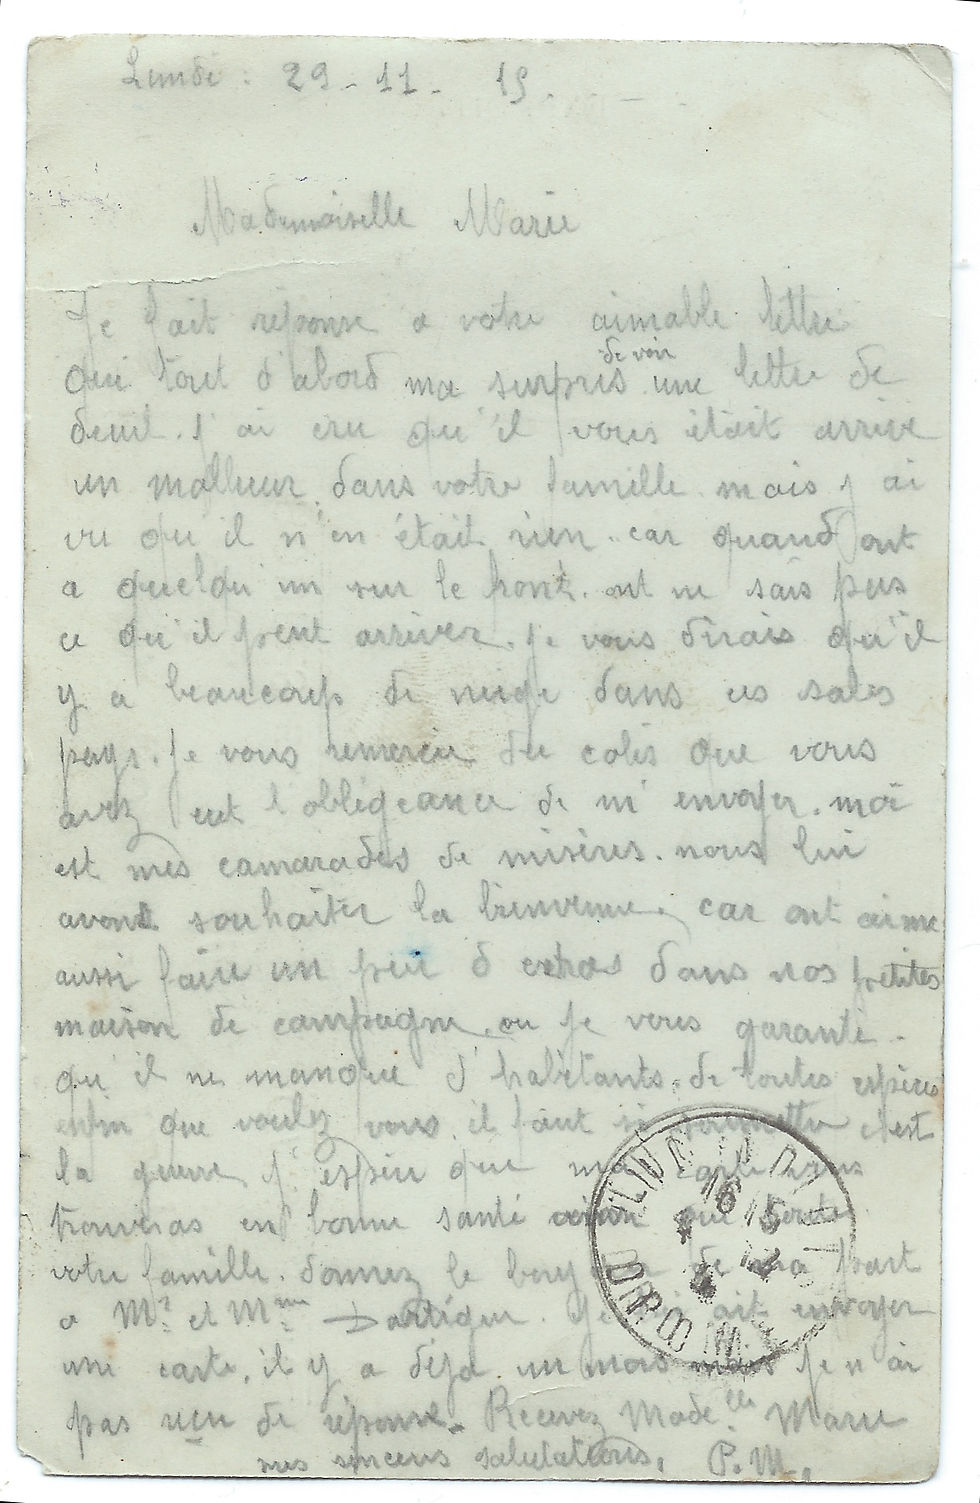 Lundi : 29 - 11 - 15.
Mademoiselle Marie
Je fait réponse a votre aimable lettre
qui tout d'abord ma surpris de voir une lettre de
deuil. j'ai cru qu'il vous était arrivé
un malheur dans votre famille mais j'ai
vu qu'il n'en était rien. car quand ont
a quelqu'un sur le front. ont ne sais pas
ce qu'il peut arriver. Je vous dirais qu'il
y a beaucoup de neige dans ces sales
pays. Je vous remercie du colis que vous
avez eut l'obligeance de m'envoyer. moi
est mes camarades de misères. nous lui
avons souhaiter la bienvenue. car ont aime
aussi faire un peu d'extras dans nos petites
maison de campagne. ou je vous garanti.
qu'il ne manque d'habitants. de toutes espèces
enfin que voulez vous. il faut si soumettre c'est
la guerre j'espère que ma carte vous
trouveras en bonne santé que toute
votre famille. donnez le bonjour de ma part
a Mr et Mme Dartigue. ait envoyer
une carte, il y a déja un mois mais je n'ai
pas reçu de réponse. Recevez Made.elle Marie
mes sincères salutations. P. M.